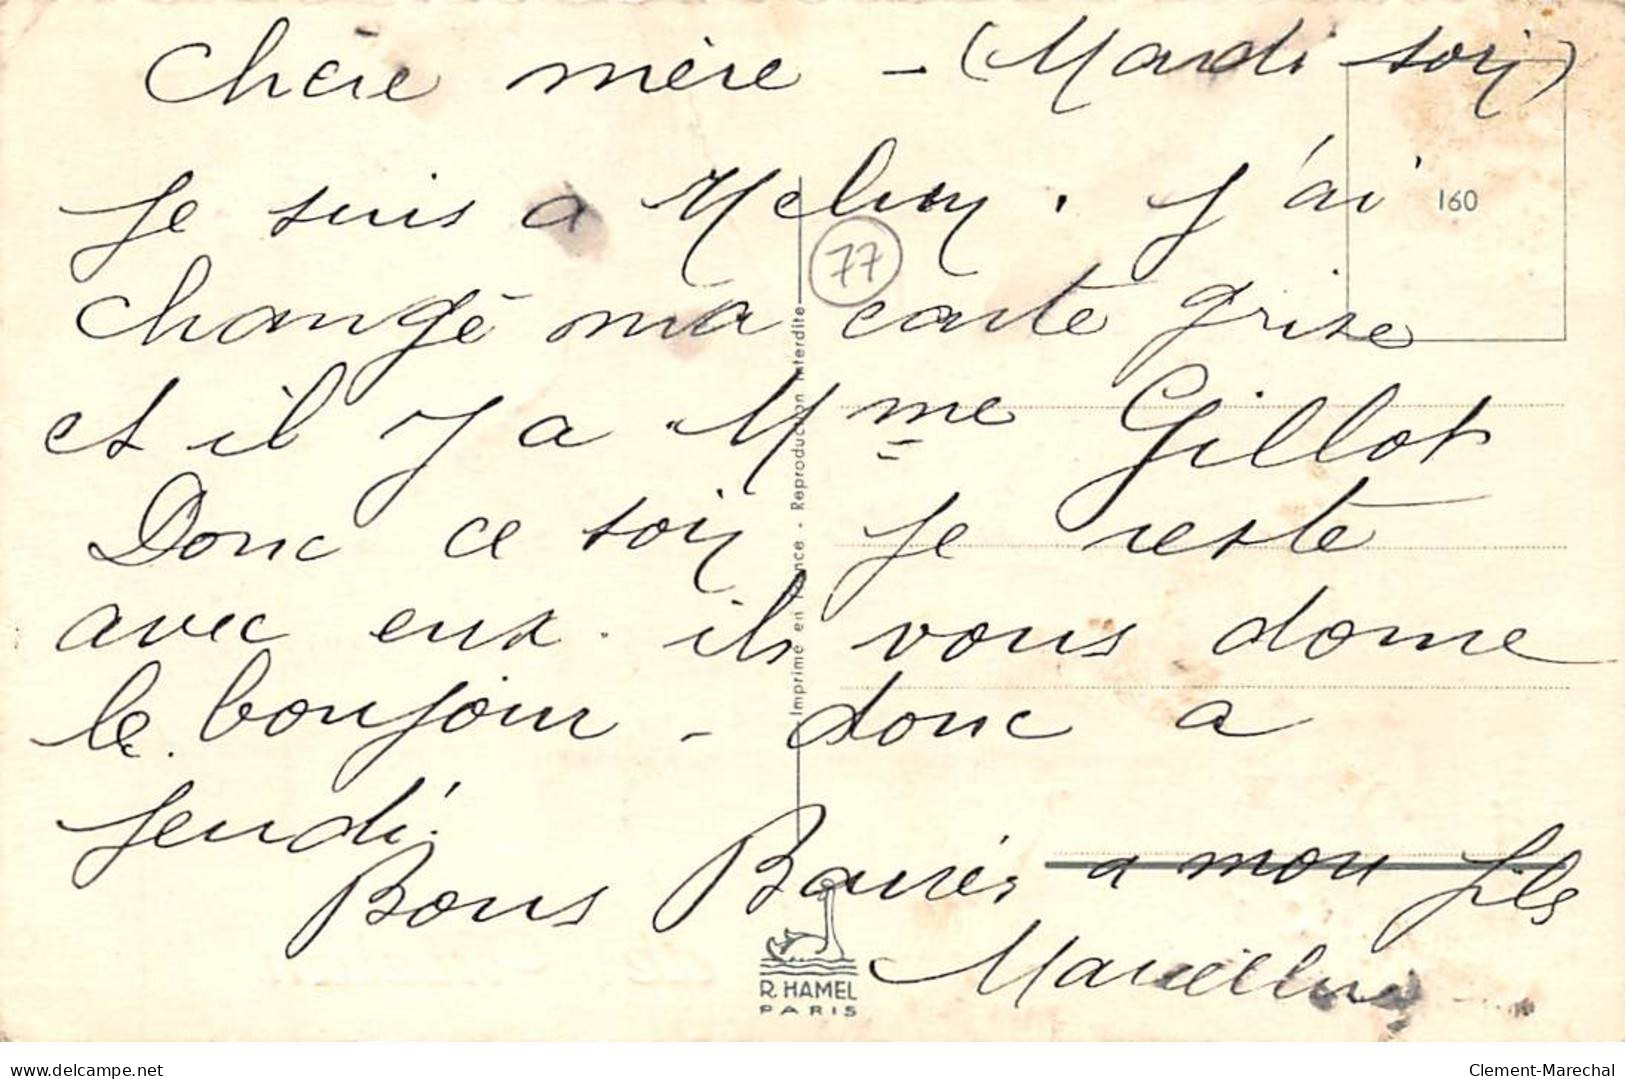 Chère mère - (Mardi soir)
Je suis a Melun. J'ai
160
77
changé ma carte grise
et il y a Mme Gillot
Donc ce soir je reste
avec eux. ils vous donne
le bonjour - donc a
jeudi.
Bons Baisés a mon fils
Marcelline
Imprimé en France - Reproduction Interdite
R. HAMEL
PARIS
delcampe.net
Clement-Marechal